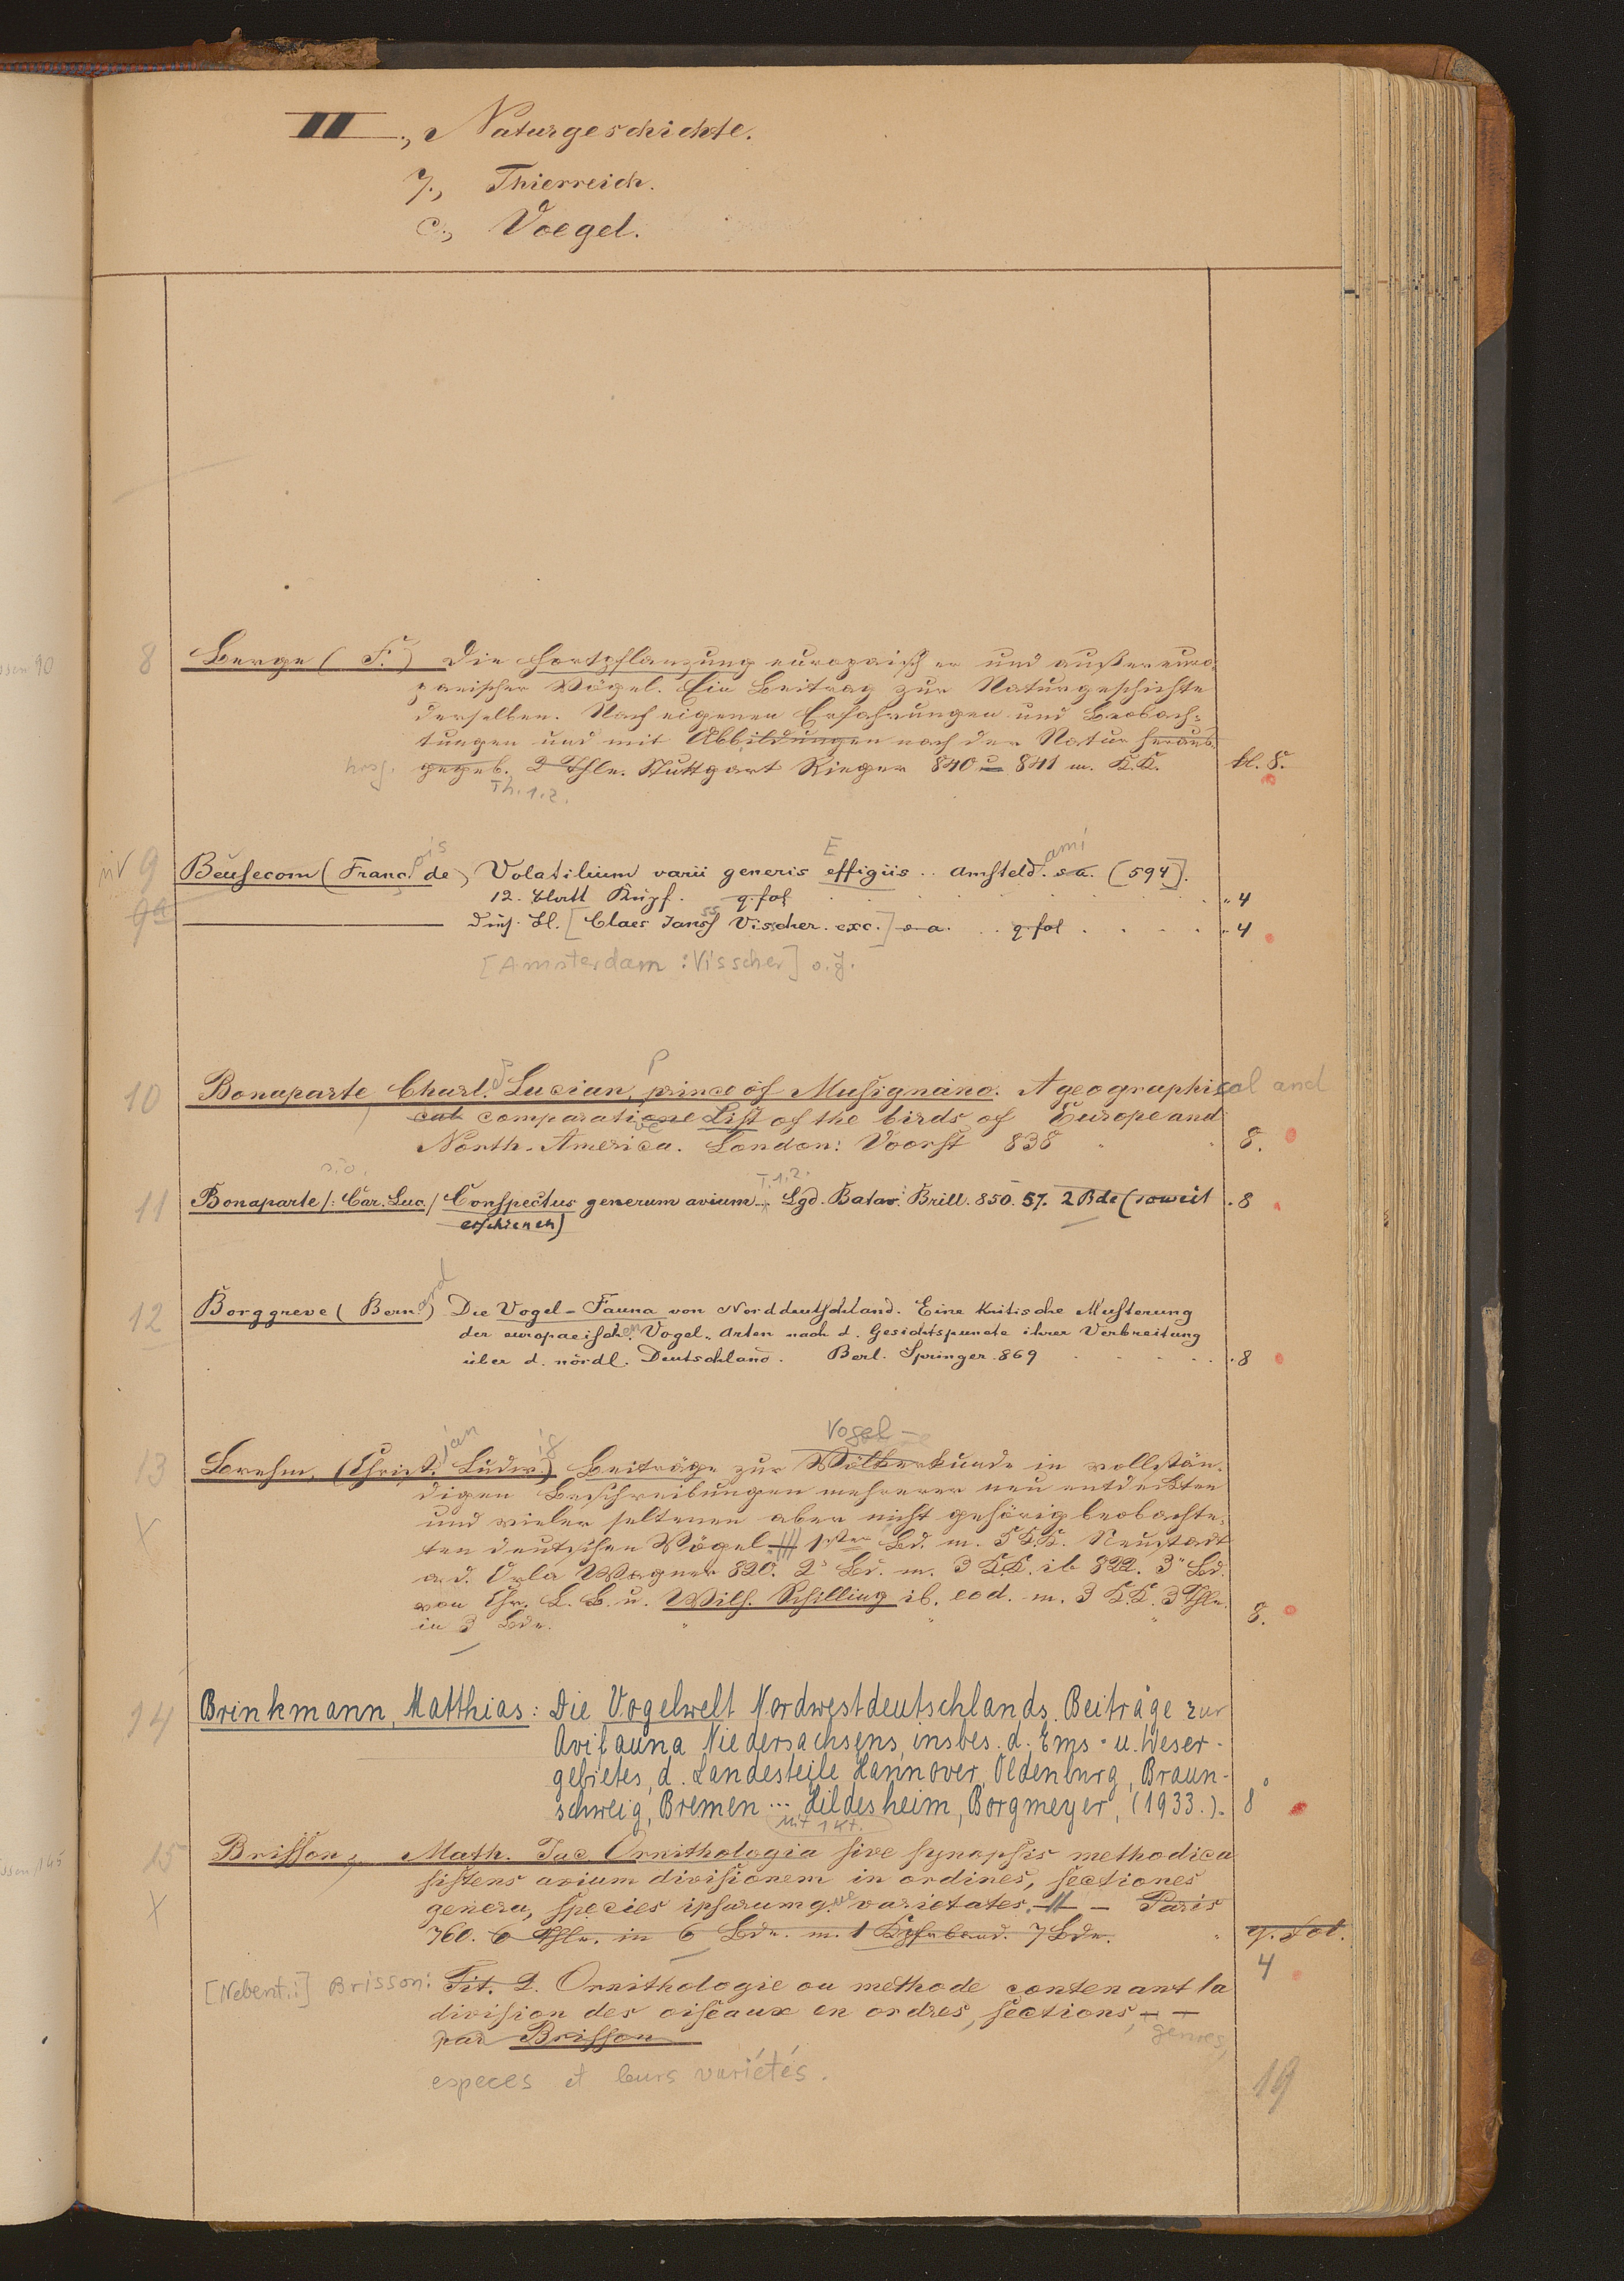 II., Naturgeschichte.
γ., Thierreich.
c., Voegel.
8 Berge (F.) Die Fortpflanzung europäischer und außereuro
päischer Vögel. Ein Beitrag zur Naturgeschichte
derselben. Nach eigenen Erfahrungen und Beobach=
tungen und mit Abbildungen nach der Natur heraus
hrsg. gegeb. 2 Thle. Stuttgart Rieger 840 u 841 m. K.K. kl. 8.
Th. 1.2.
9 Beusecom (Franc.ois de) Volatilium varii generis Effigiis .. Amsteld.ami s. a. (594].
12. Blatt Kupf. q. fol " 4
9a Bl. [Claes Jansss Visscher. exc.] s. a. q fol " 4
[Amsterdam : Visscher] o. J.
10 Bonaparte Charl. Lucian, prince of Musignano. A geographical and
cal comparative List of the birds of Europe and
North-America. London: Voorst 838 8.
11 Bonaparte /: Car. Luc. / Conspectus generum avium T. 1.2. Lgd. Batav. Brill. 850. 57. 2 Bde (soweit . 8
erschienen)
12 Borggreve (Bernard) Die Vogel-Fauna von Norddeutschland. Eine Kritische Musterung
der europaeischen Vogel-Arten nach d. Gesichtspuncte ihrer Verbreitung
über d. nördl. Deutschland. Berl. Springer. 869 . 8
Vogel-
13 Brehm, (Christ.ian Ludwig) Beiträge zur Völkerkunde in vollstän=
digen Beschreibungen mehrerer neu entdeckten
X und vieler seltenen aber nicht gehörig beobachte=
ten deutschen Vögel 1ster Bd. m. 5 KK. Neustadt
a. d. Orla Wagner 820. 2r Bd. m. 3 K.K. ib 822. 3r Bd.
von Chr. L. B. u. Wilh. Schilling ib. eod. m. 3 K.K. 3 Thle.
in 3 Bde. 8.
14 Brinkmann, Matthias: Die Vogelwelt Nordwestdeutschlands. Beiträge zur
Avifauna Niedersachsens, insbes. d. Ems- u. Weser-
gebietes, d. Landesteile Hannover, Oldenburg, Braun-
schweig, Bremen ... Hildesheim, Borgmeyer, (1933.). 8°
Mit 1 Kt.
15 Brisson, Math. Jac. Ornithologia sive synopsis methodica
sistens avium divisionem in ordines, sectiones
X genera, species ipsarumque varietates. — Paris
760. 6 Thle. in 6 Bde. m. 1 Kpfrband. 7 Bde. q. fol.
4
[Nebent.:] Brisson: Tit. 2. Ornithologie ou methode contenant la
division des oiseaux en ordres, sections, —
par Brisson genres,
especes et leurs variétés.
19